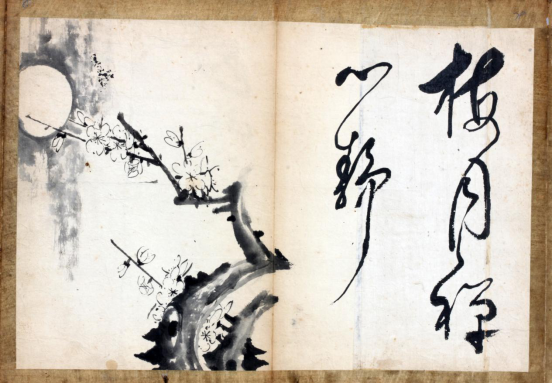 梅月禅
心静